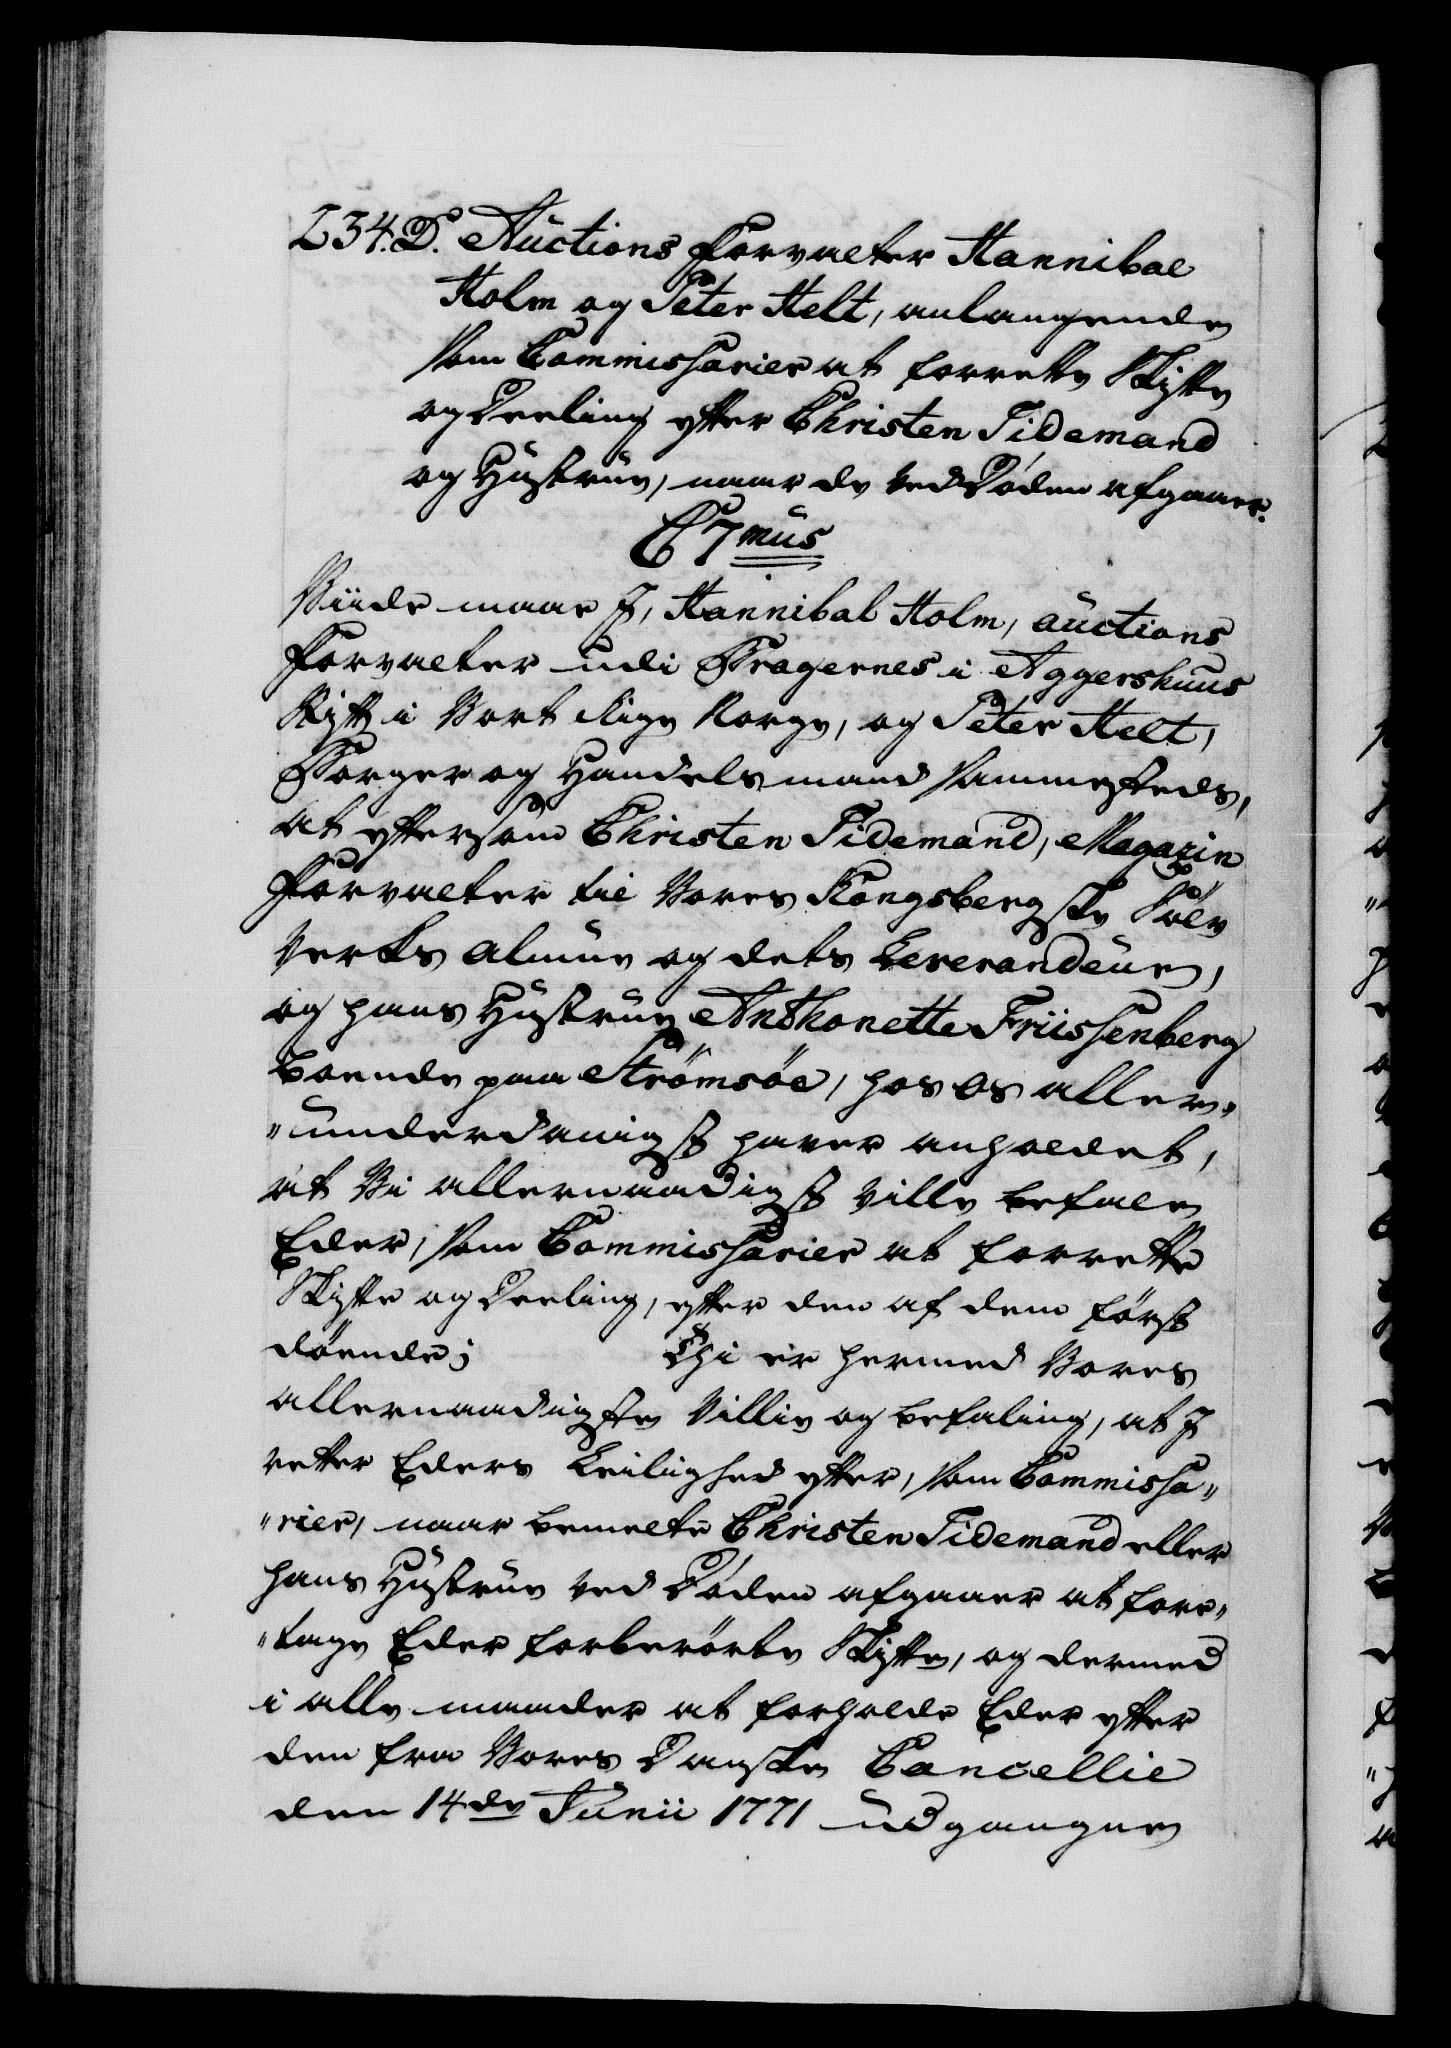 234. D. Auctions Forvalter Hannibal
Holm og Peter Helt, anlangende
som Commissarier at forrette Skifte
og Deeling efter Christen Tidemand
og Hustrue, naar de ved Døden afgaaer.
C 7mus
Viide maae I, Hannibal Holm, auctions
Forvalter udi Bragernes i Aggershuus
Stift i Vort Rige Norge, og Peter Helt,
Borger og Handelsmand sammesteds,
at eftersom Christen Tidemand, Magazin
Forvalter til Vores Kongsbergske Sølv
Verks almue og dets Leverandeur,
og hans Hustrue Anthonette Friissenberg
boende paa Strömsöe, hos os aller„
„underdanigst haver anholdet,
at Vi allernaadigst ville befale
Eder, som Commissarier at forrette
Skifte og Deeling, efter den af dem først
döende; Thi er hermed Vores
allernaadigste Villie og befaling, at I
retter Eders Leilighed efter, som Commissa„
„rier, naar bemelte Christen Tidemand eller
hans Hustrue ved Døden afgaaer at fore„
„tage Eder forberörte Skifte, og dermed
i alle maader at forholde Eder efter
den fra Vores Danske Cancellie
den 14de Junii 1771 udgangne